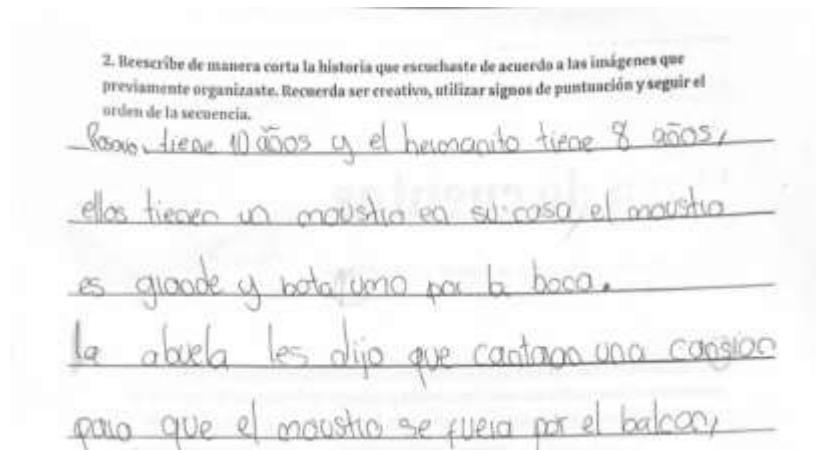 2. Reescribe de manera corta la historia que escuchaste de acuerdo a las imágenes que
previamente organizaste. Recuerda ser creativo, utilizar signos de puntuación y seguir el
orden de la secuencia.
tiene 10 años y el hermanito tiene 8 años,
ellos tienen un moustro en su casa, el moustro
es grande y bota fumo por la boca.
la abuela les dijo que cantaran una cansion
para que el moustro se fuera por el balcon,